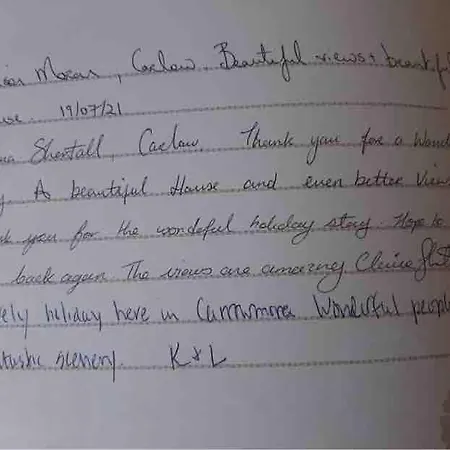 Moran, Carlow. Beautiful views & beautiful
19/07/21
Shortall, Carlow. Thank you for a
A beautiful House and even better View
you for the wonderful holiday stay. Hope to
back again The views are amazing
holiday here in Wonderful people
scenery. K & L